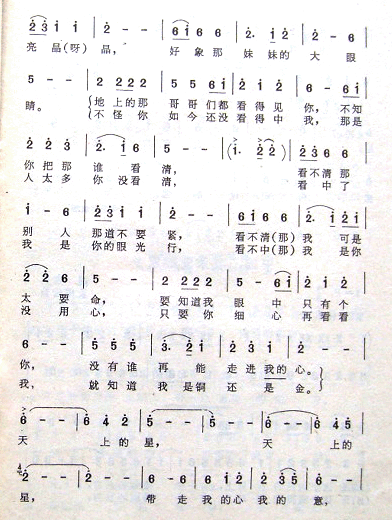 2̇ 3̇ i i | 2̇ - - | 6 i 6 6 | 2̇. i 2̇ | 2̇ - 6
亮晶(呀)晶， 好象那 妹妹的 大眼
5 - - | 2 2 2 2 | 5 5 6 i | 2̇ i 2̇ | 2̇ - 6 6
睛。 {地上的那 哥哥们都 看得见 你，不知
不怪你 如今还没 看得中 我，那是
2̇ 2̇ 3̇ | 2̇. i 6 | 5 - - | (i. 2̇ 2̇) | 2̇ 3̇ 6 6
你把那 谁看 清， 看不清那
人太多 你没看 清， 看中了
i - 6 | 2̇ 3̇ i i | 2̇ - - | 6 i 6 6 | 2̇. i 2̇ i
别人 那道不要 紧， 看不清(那) 我可是
我是 你的眼光 行， 看不中(那) 我是你
2̇ 2̇ 6 | 5 - - | 2 2 2 2 | 5 - 6 i | 2̇ i 2̇
太要 命， 要知道我 眼中 只有个
没用 心， 只要你 细心 再看看
6 - - | 5 5 5 | 3̇. 2̇ i | 5 2̇ i | i - -
你， 没有谁 再能 走进我的心。}
我， 就知道 我是铜 还是金。
6̇ - - | 6̇ 4̇ 2̇ | 5̇ - - | 5̇ - - | 6̇ - - | 6̇ 4̇ 5̇
天 上的星， 天 上的
2̇ - - | 2̇ - - | 6 i 6 | 6 i 2̇ | 2̇ 3̇ 5̇ | 6 - -
星， 带走我的心我的意，